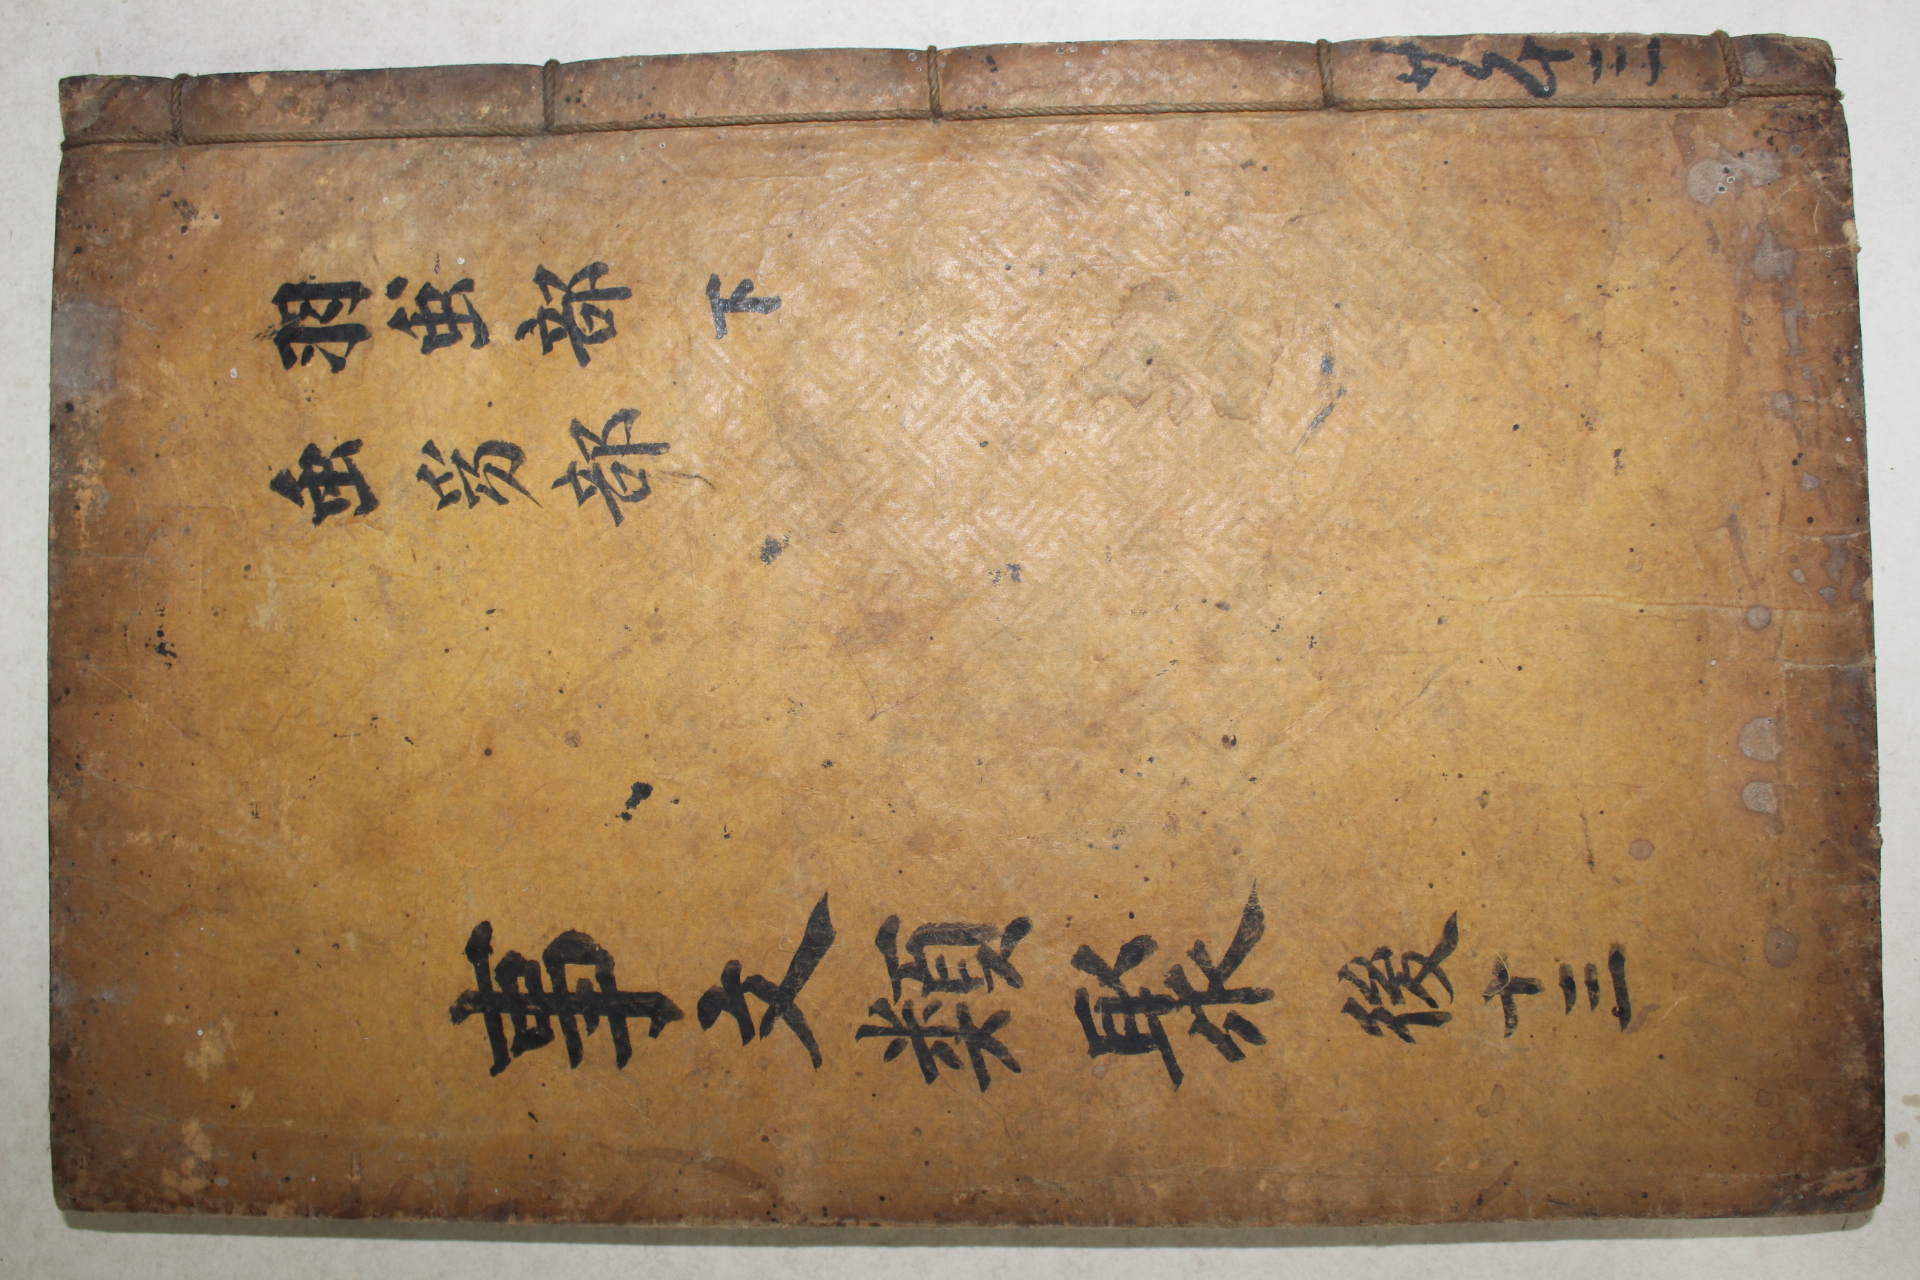 羽虫部下
虫豸部
事文類聚 後十三